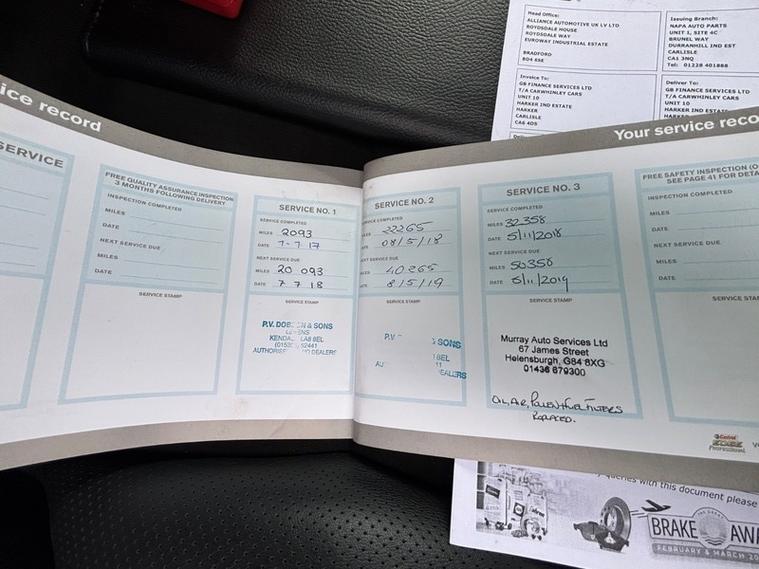 Head Office:
ALLIANCE AUTOMOTIVE UK LV LTD
ROYDSDALE HOUSE
ROYDSDALE WAY
EUROWAY INDUSTRIAL ESTATE
BRADFORD
BD4 6SE
Issuing Branch:
NAPA AUTO PARTS
UNIT 1, SITE 4C
BRUNEL WAY
DURRANHILL IND EST
CARLISLE
CA1 3NQ
Tel: 01228 401888
Invoice To:
GB FINANCE SERVICES LTD
T/A CARWHINLEY CARS
UNIT 10
HARKER IND ESTATE
HARKER
CARLISLE
CA6 4DS
Deliver To:
GB FINANCE SERVICES LTD
T/A CARWHINLEY CARS
UNIT 10
HARKER IND ESTATE
HARKER
ice record
SERVICE
FREE QUALITY ASSURANCE INSPECTION
3 MONTHS FOLLOWING DELIVERY
INSPECTION COMPLETED
MILES
DATE
NEXT SERVICE DUE
MILES
DATE
SERVICE STAMP
SERVICE NO. 1
SERVICE COMPLETED
MILES 2093
DATE 7-7-17
NEXT SERVICE DUE
MILES 20 093
DATE 7 7 18
SERVICE STAMP
P.V. DOB N & SONS
KENDA LA8 8EL
52441
AUTHORISE DEALERS
Your service reco
SERVICE NO. 2
SERVICE COMPLETED
MILES 22265
DATE 08/5/18
NEXT SERVICE DUE
MILES 40265
DATE 8/5/19
SERVICE STAMP
P.V SONS
8EL
AU 11
EALERS
SERVICE NO. 3
SERVICE COMPLETED
MILES 32358
DATE 5/11/2018
NEXT SERVICE DUE
MILES 50358
DATE 5/11/2019
SERVICE STAMP
Murray Auto Services Ltd
67 James Street
Helensburgh, G84 8XG
01436 679300
OIL, AIR, POLLEN + FUEL FILTERS
REPLACED.
FREE SAFETY INSPECTION (O
SEE PAGE 41 FOR DETA
INSPECTION COMPLETED
MILES
DATE
NEXT SERVICE DUE
MILES
DATE
SERVICE STAM
Castrol
EDGE
Professional
queries with this document please
BRAKE AWA
FEBRUARY & MARCH 20